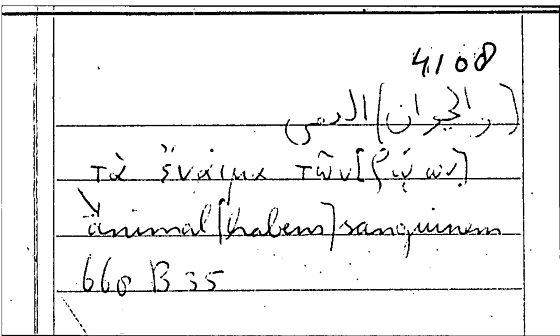 4108
(والحيوان) الدمى
τὰ ἔναιμα τῶν[ζῴων]
animal[habens]sanguinem
660 B 35